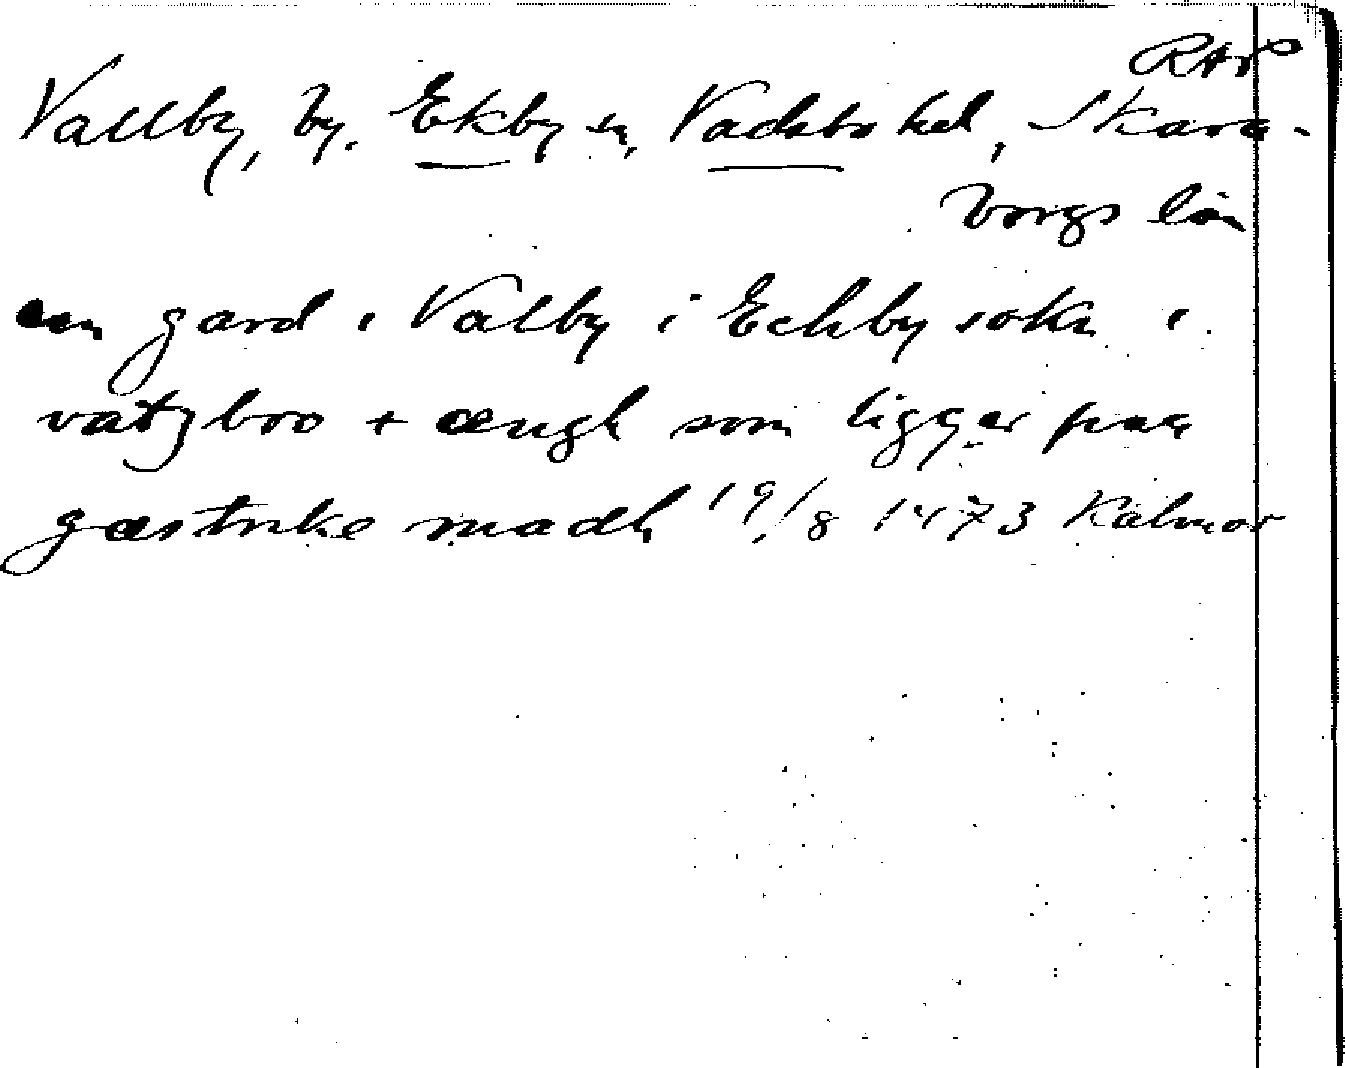 RAP
Vallby, by, Ekby sn, Vadsbo hd, Skara-
borgs län
en gard i Valby i Eckby sokn i
vatzboo + ængh som ligger paa
gæstrike madh 19/8 1473 Kalmar